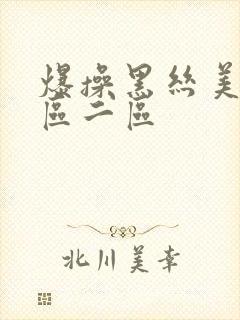 爆操黑丝美
區二區
北川美幸